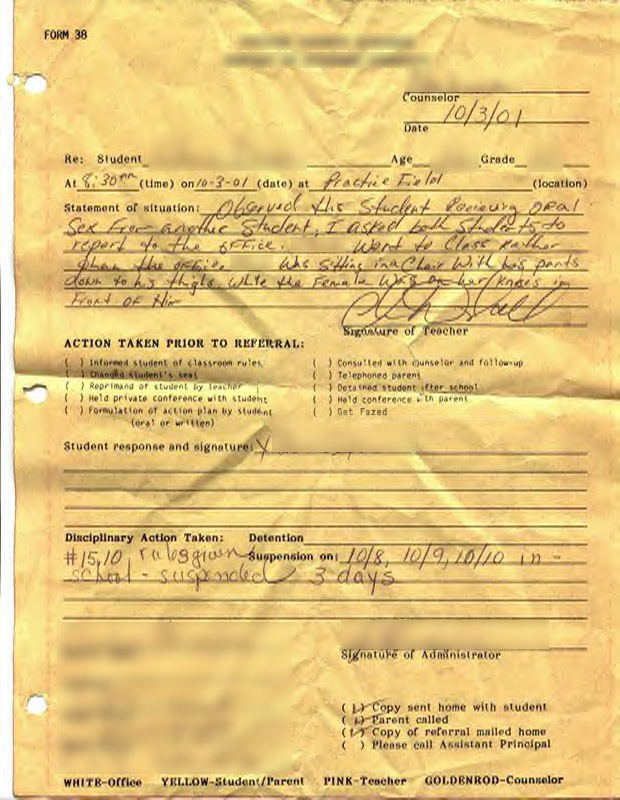 FORM 38
Counselor
10/3/01
Date
Re: Student Age Grade
At 8:30 (time) on 10-3-01 (date) at Practice Field (location)
Statement of situation: Observed this Student Receiving oral
Sex From another Student; I asked both Students to
report to the office. Went to Class Rather
than the office. Was Sitting in a Chair With his pants
down to his thighs, While the Female Was on her knees in
Front of Him
Signature of Teacher
ACTION TAKEN PRIOR TO REFERRAL:
( ) Informed student of classroom rules ( ) Consulted with counselor and follow-up
( ) Changed student's seat ( ) Telephoned parent
( ) Reprimand of student by teacher ( ) Detained student after school
( ) Held private conference with student ( ) Held conference with parent
( ) Formulation of action plan by student ( ) Get Fazed
(oral or written)
Student response and signature: X
Disciplinary Action Taken: Detention
#15,10, rules given Suspension on: 10/8, 10/9, 10/10 in-
school - suspended 3 days
Signature of Administrator
( ) Copy sent home with student
( ) Parent called
( ) Copy of referral mailed home
( ) Please call Assistant Principal
WHITE-Office YELLOW-Student/Parent PINK-Teacher GOLDENROD-Counselor